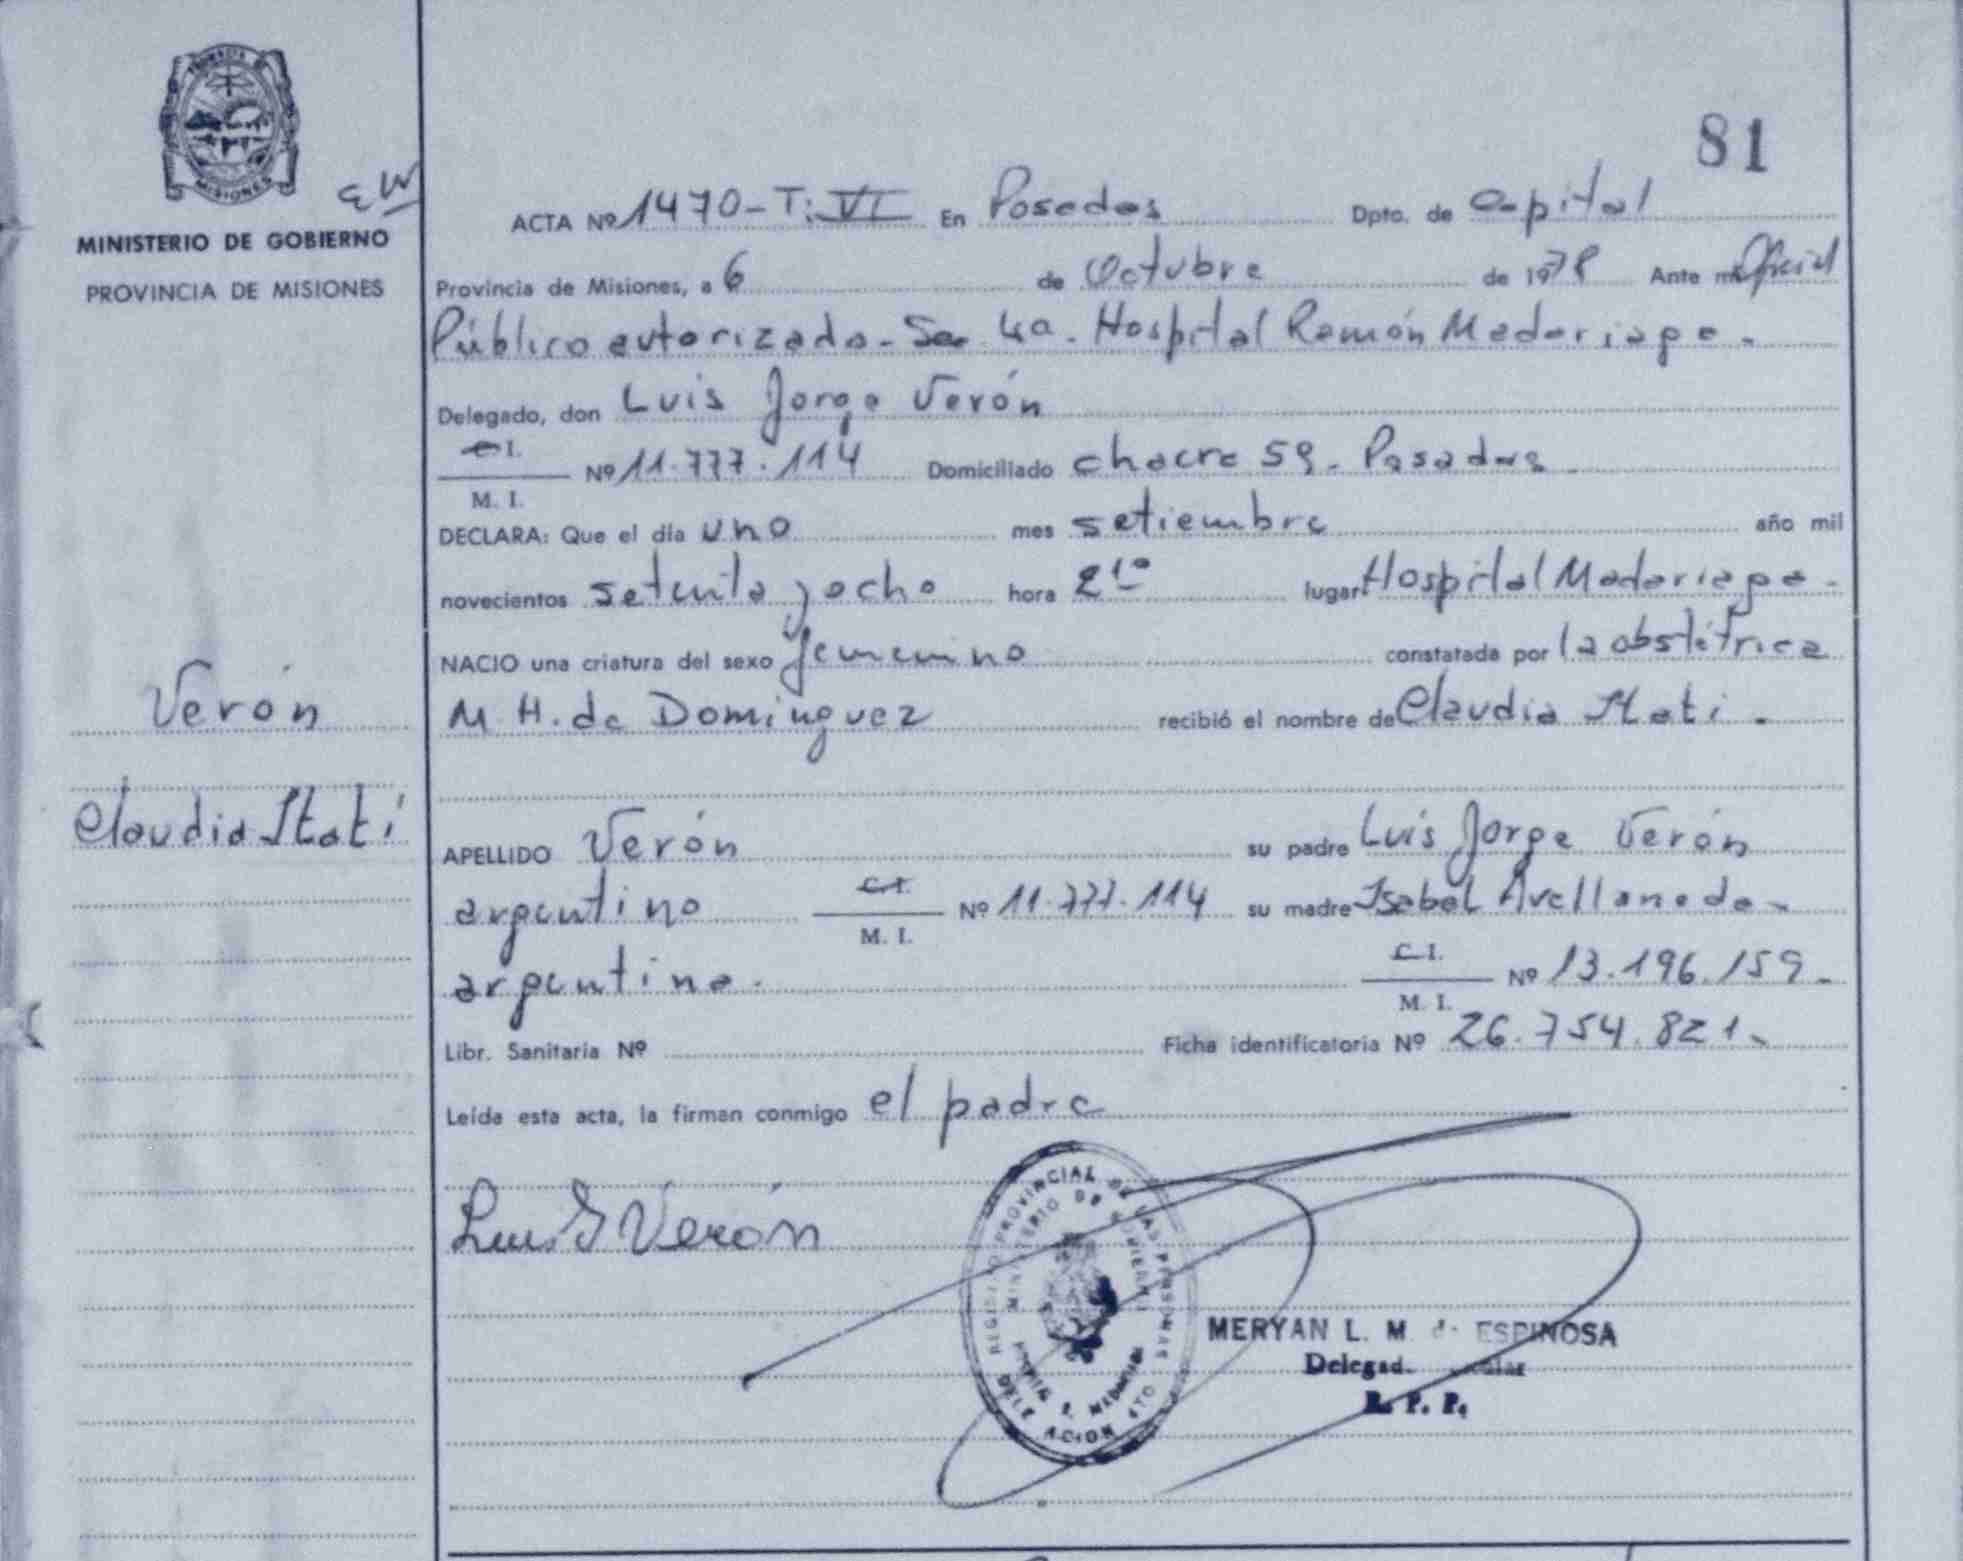 81
MISIONES
MINISTERIO DE GOBIERNO
PROVINCIA DE MISIONES
ACTA Nº 1470-T: VI En Posadas Dpto. de Capital
Provincia de Misiones, a 6 de Octubre de 1978 Ante mi Oficial
Público autorizado - Sec 4a. Hospital Ramón Madariaga.
Delegado, don Luis Jorge Verón
C.I.
M. I. Nº 11.777.114 Domiciliado chacra 59. Posadas.
DECLARA: Que el día uno mes setiembre año mil
novecientos setenta y ocho hora 21º lugar Hospital Madariaga.
NACIO una criatura del sexo femenino constatada por la obstétrica
M. H. de Dominguez recibió el nombre de Claudia Itati.
Verón
Claudia Itatí
APELLIDO Verón su padre Luis Jorge Verón
argentino C.I. M. I. Nº 11.777.114 su madre Isabel Avellaneda-
argentina. C.I. M. I. Nº 13.196.159-
Libr. Sanitaria Nº Ficha identificatoria Nº 26.754.821-
Leída esta acta, la firman conmigo el padre
Luis J Verón
REGISTRO PROVINCIAL DE LAS PERSONAS
MINISTERIO DE GOBIERNO
DELEGACION 4TO
MERYAN L. M. de ESPINOSA
R. P. P.